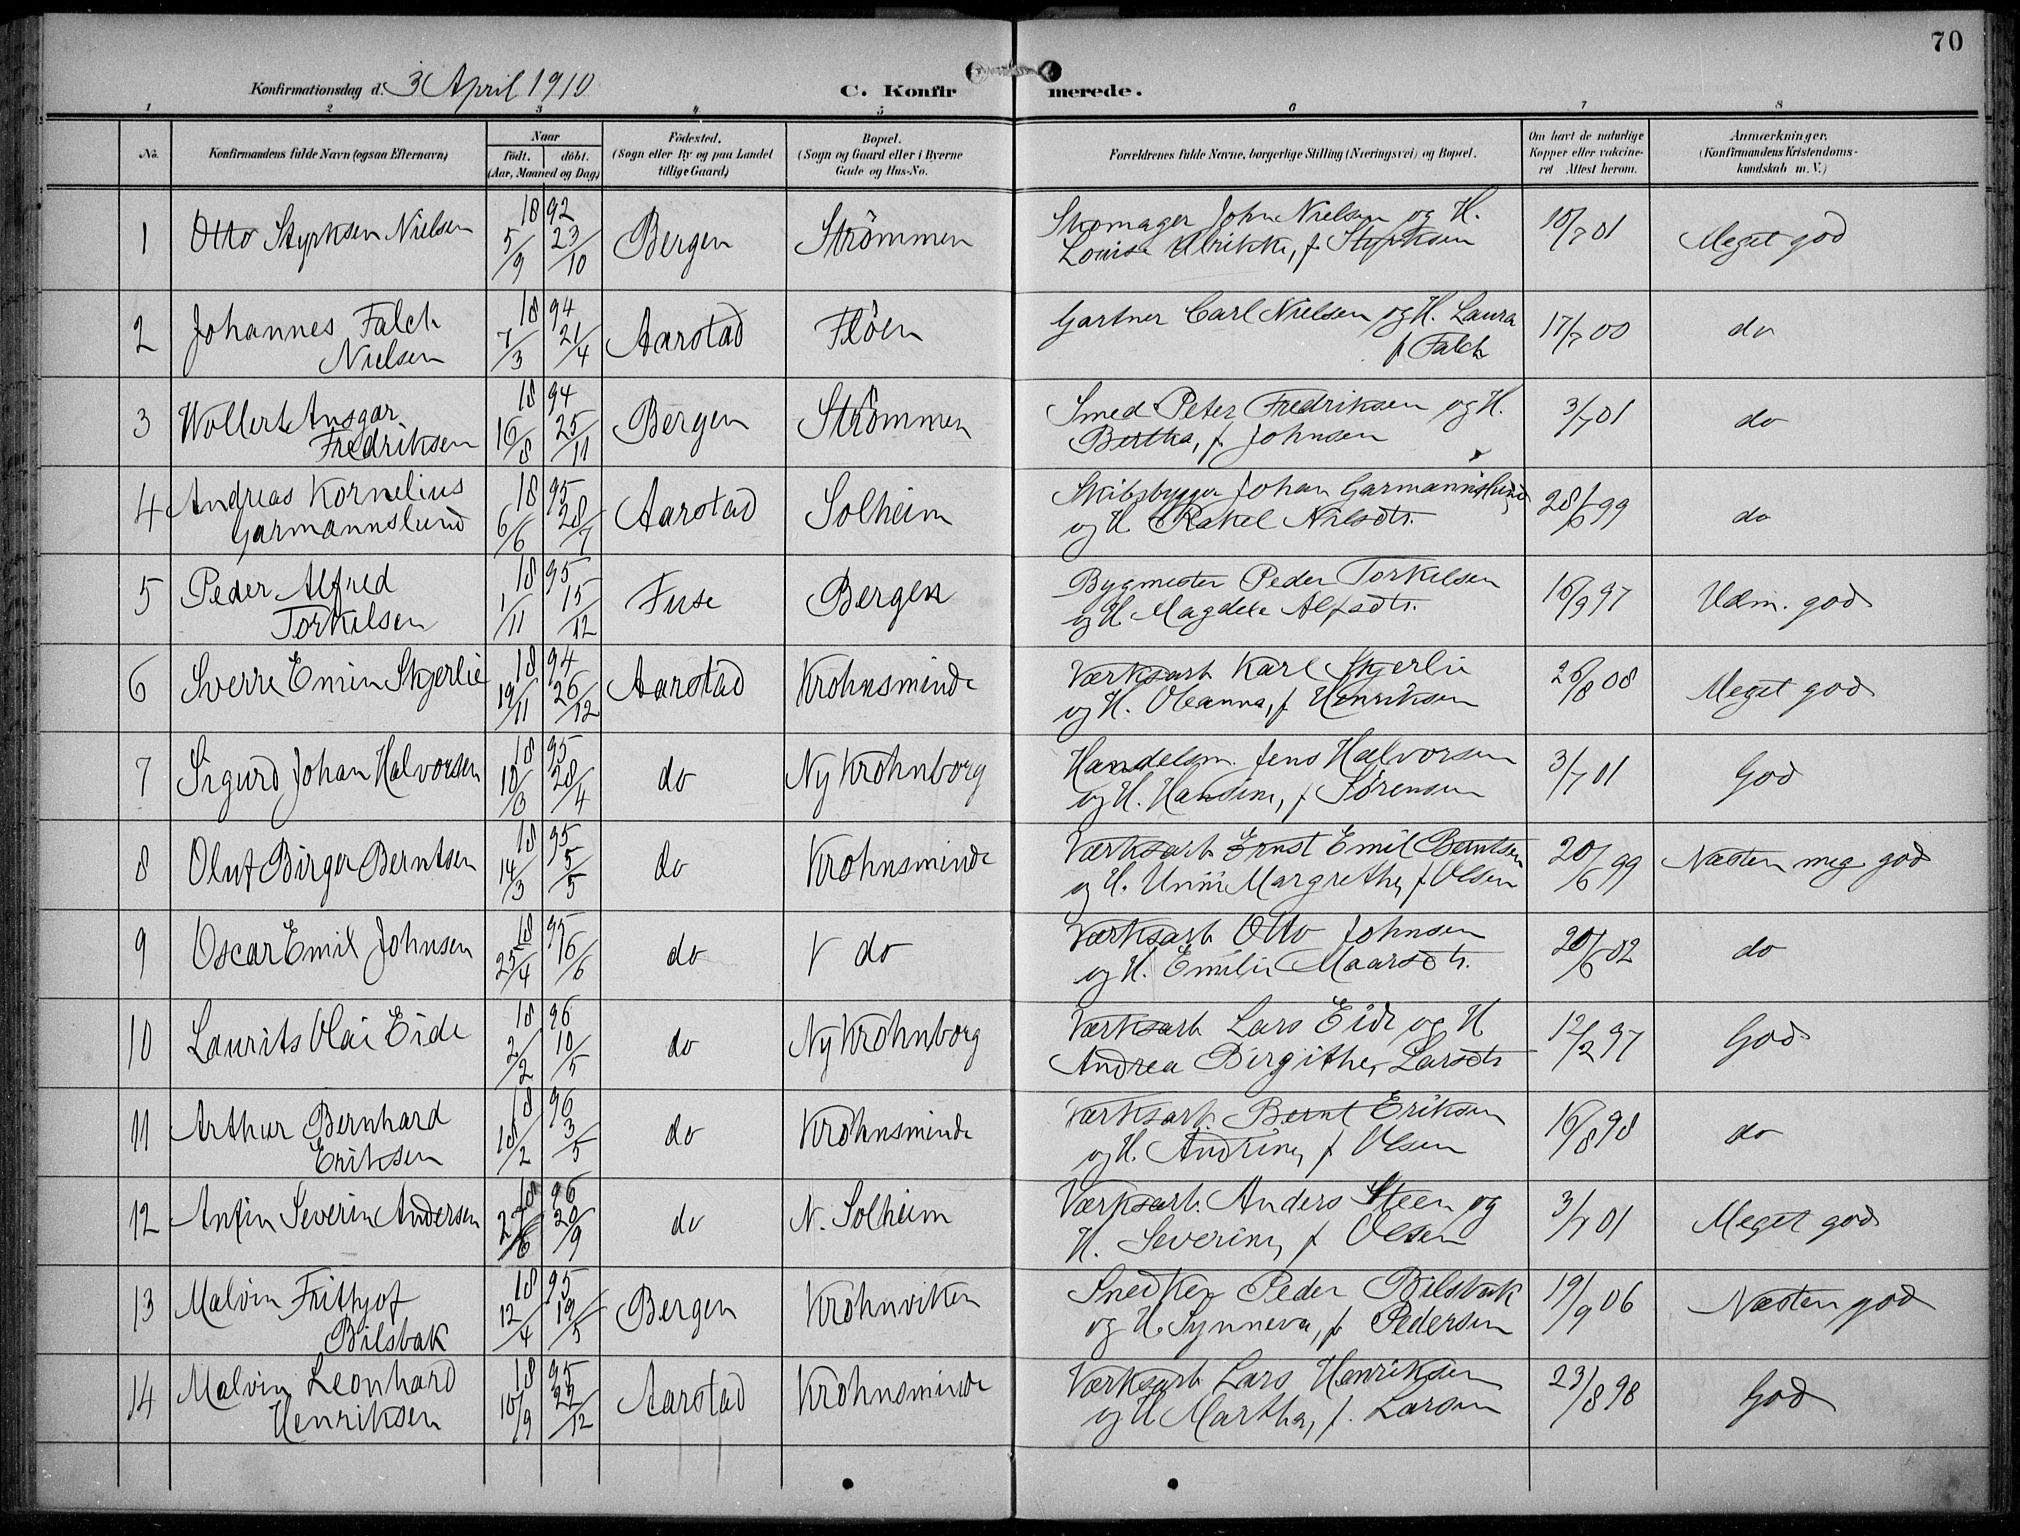 70
Konfirmationsdag d. 3 April 1910 C. Konfirmerede.
1 2 3 4 5 6 7 8
No. Konfirmandens fulde Navn (ogsaa Efternavn) Naar født. døbt. (Aar, Maaned og Dag) Fødested. (Sogn eller By og paa Landet tillige Gaard) Bopæl. (Sogn og Gaard eller i Byerne Gade og Hus-No. Forældrenes fulde Navne, borgerlige Stilling (Næringsvei) og Bopæl. Om havt de naturlige Kopper eller vakcineret Attest herom. Anmærkninger. (Konfirmandens Kristendomskundskab m. V.)
1 Otto Styrksen Nielsen 1892 5/9 23/10 Bergen Strömmen Skomager John Nielsen og H. 10/7 01 Meget god
Louise Ulrikke, f Styrksen
2 Johannes Falch 1894 7/3 21/4 Aarstad Flöen Gartner Carl Nielsen og H. Laura 17/7 00 do
Nielsen f Falch
3 Wollert Ansgar 1894 16/8 25/11 Bergen Strömmen Smed Peter Fredriksen og H. 3/7 01 do
Fredriksen Bertha, f. Johnsen
4 Andreas Kornelius 1895 6/6 28/7 Aarstad Solheim Skibsbygger Johan Garmannslund 28/6 99 do
Garmannslund og H Rakel Nilsdtr.
5 Peder Alfred 1895 1/11 15/12 Fuse Bergen Bygmester Peder Torkelsen 16/9 97 Udm. god
Torkelsen og H Magdele Alfsdtr.
6 Sverre Emin Skjerlie 1894 19/11 26/12 Aarstad Krohnsminde Værksarb Karl Skjerlie 26/8 08 Meget god
og H. Oleanna, f Henriksen
7 Sigurd Johan Halvorsen 1895 10/3 28/4 do Ny Krohnborg Handelsm. Jens Halvorsen 3/7 01 God
og H. Hansine, f Sørensen
8 Oluf Birger Berntsen 1895 14/3 5/5 do Krohnsminde Værksarb Ernst Emil Berntsen 20/6 99 Næsten meg god
og H. Unni Margrethe, f Olsen
9 Oscar Emil Johnsen 1895 25/4 16/6 do do Værksarb Otto Johnsen 20/6 02 do
og H. Emilie Maarsdtr.
10 Laurits Olai Eide 1896 2/2 10/5 do Ny Krohnborg Værksarb Lars Eide og H 12/2 97 God
Andrea Birgithe, Larsdtr
11 Arthur Bernhard 1896 18/2 3/5 do Krohnsminde Værksarb. Bernt Eriksen 16/8 98 do
Eriksen og H. Andrine, f Olsen
12 Anfin Severin Andersen 1896 27/6 20/9 do N. Solheim Værksarb. Anders Steen og 3/7 01 Meget god
H. Severine, f Olsen
13 Malvin Frithjof 1895 12/4 19/5 Bergen Krohnviken Snedker Peder Bilsbak 19/9 06 Næsten god
Bilsbak og H. Synneva, f. Pedersen
14 Malvin Leonhard 1895 10/9 22/12 Aarstad Krohnsminde Værksarb Lars Henriksen 23/8 98 God
Henriksen og H Martha, f. Larsen